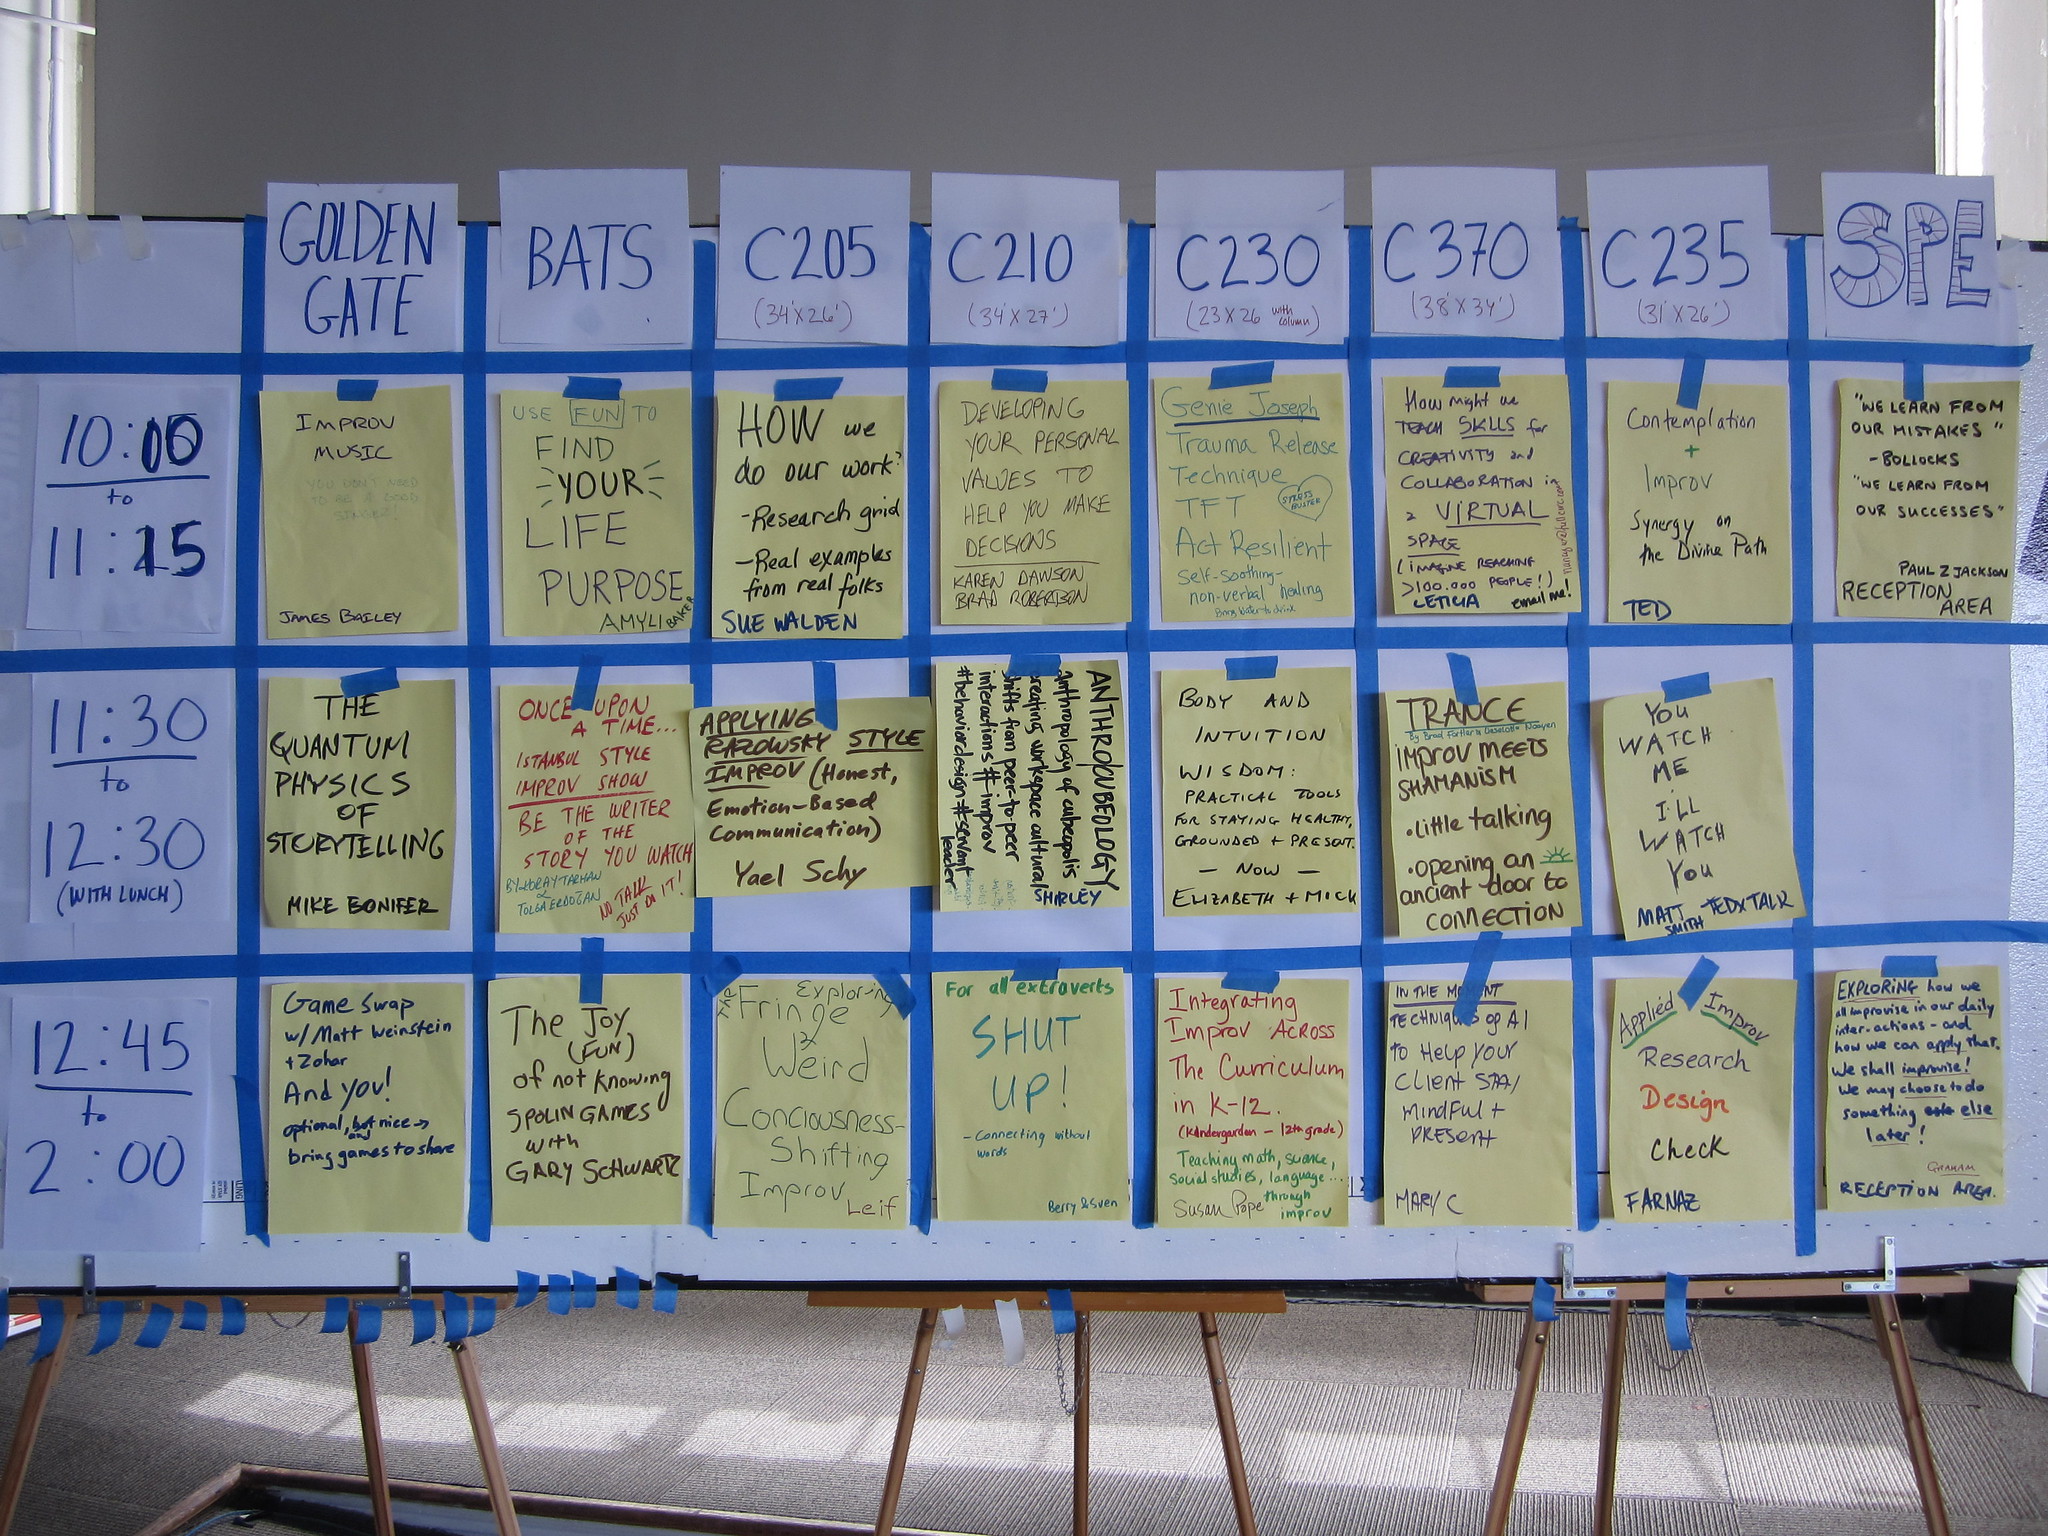 GOLDEN
GATE
BATS
C205
(34'X26')
C210
(34'X27')
C230
(23X26 with column)
C370
(38'X34')
C235
(31'X26')
SPE
10:00
to
11:15
IMPROV
MUSIC
YOU DON'T NEED
TO BE A GOOD
SINGER!
JAMES BAILEY
USE FUN TO
FIND
YOUR
LIFE
PURPOSE
AMYLI
BAKER
HOW we
do our work?
-Research grid
-Real examples
from real folks
SUE WALDEN
DEVELOPING
YOUR PERSONAL
VALUES TO
HELP YOU MAKE
DECISIONS
KAREN DAWSON
BRAD ROBERTSON
Genie Joseph
Trauma Release
Technique
TFT
STRESS
BUSTER
Act Resilient
Self-soothing-
non-verbal healing
Bring water to drink
How might we
TEACH SKILLS for
CREATIVITY and
COLLABORATION in
a VIRTUAL
SPACE
(IMAGINE REACHING
>100.000 PEOPLE!)
LETICIA email me!
Contemplation
+
Improv
Synergy on
the Divine Path
TED
"WE LEARN FROM
OUR MISTAKES"
-BOLLOCKS
"WE LEARN FROM
OUR SUCCESSES"
PAUL Z JACKSON
RECEPTION
AREA
11:30
to
12:30
(WITH LUNCH)
THE
QUANTUM
PHYSICS
OF
STORYTELLING
MIKE BONIFER
ONCE UPON
A TIME...
ISTANBUL STYLE
IMPROV SHOW
BE THE WRITER
OF THE
STORY YOU WATCH
BY KORAY TARHAN
&
TOLGA ERDOGAN
NO TALK
JUST DO IT!
APPLYING
RAZOWSKY STYLE
IMPROV (Honest,
Emotion-Based
Communication)
Yael Schy
ANTHRO/CUBEOLOGY
anthropology of cubeopolis
creating workspace cultural
shifts from peer-to-peer
interactions #improv
#behaviordesign #servant
leader
SHIRLEY
BODY AND
INTUITION
WISDOM:
PRACTICAL TOOLS
FOR STAYING HEALTHY,
GROUNDED + PRESENT.
— NOW —
ELIZABETH + MICK
TRANCE
IMPROV MEETS
SHAMANISM
•little talking
•opening an
ancient door to
CONNECTION
YOU
WATCH
ME
I'LL
WATCH
YOU
MATT SMITH TEDX TALK
12:45
to
2:00
Game Swap
w/Matt Weinstein
+Zohar
And you!
optional, but nice →
any
bring games to share
The Joy
(FUN)
of not knowing
SPOLIN GAMES
with
GARY SCHWARTZ
Exploring
The Fringe
&
Weird
Conciousness-
Shifting
Improv
Leif
For all extraverts
SHUT
UP!
- Connecting without
words
Berry & Sven
Integrating
Improv Across
The Curriculum
in K-12.
(Kindergarden - 12th grade)
Teaching math, science,
social studies, language....
through
improv
Susan Pope
IN THE MOMENT
TECHNIQUES of AI
to Help your
Client STAY
Mindful +
PRESENT
MARY C
Applied Improv
Research
Design
Check
FARNAZ
EXPLORING how we
all improvise in our daily
inter-actions - and
how we can apply that.
We shall improvise!
We may choose to do
something else
later!
GRAHAM
RECEPTION AREA.